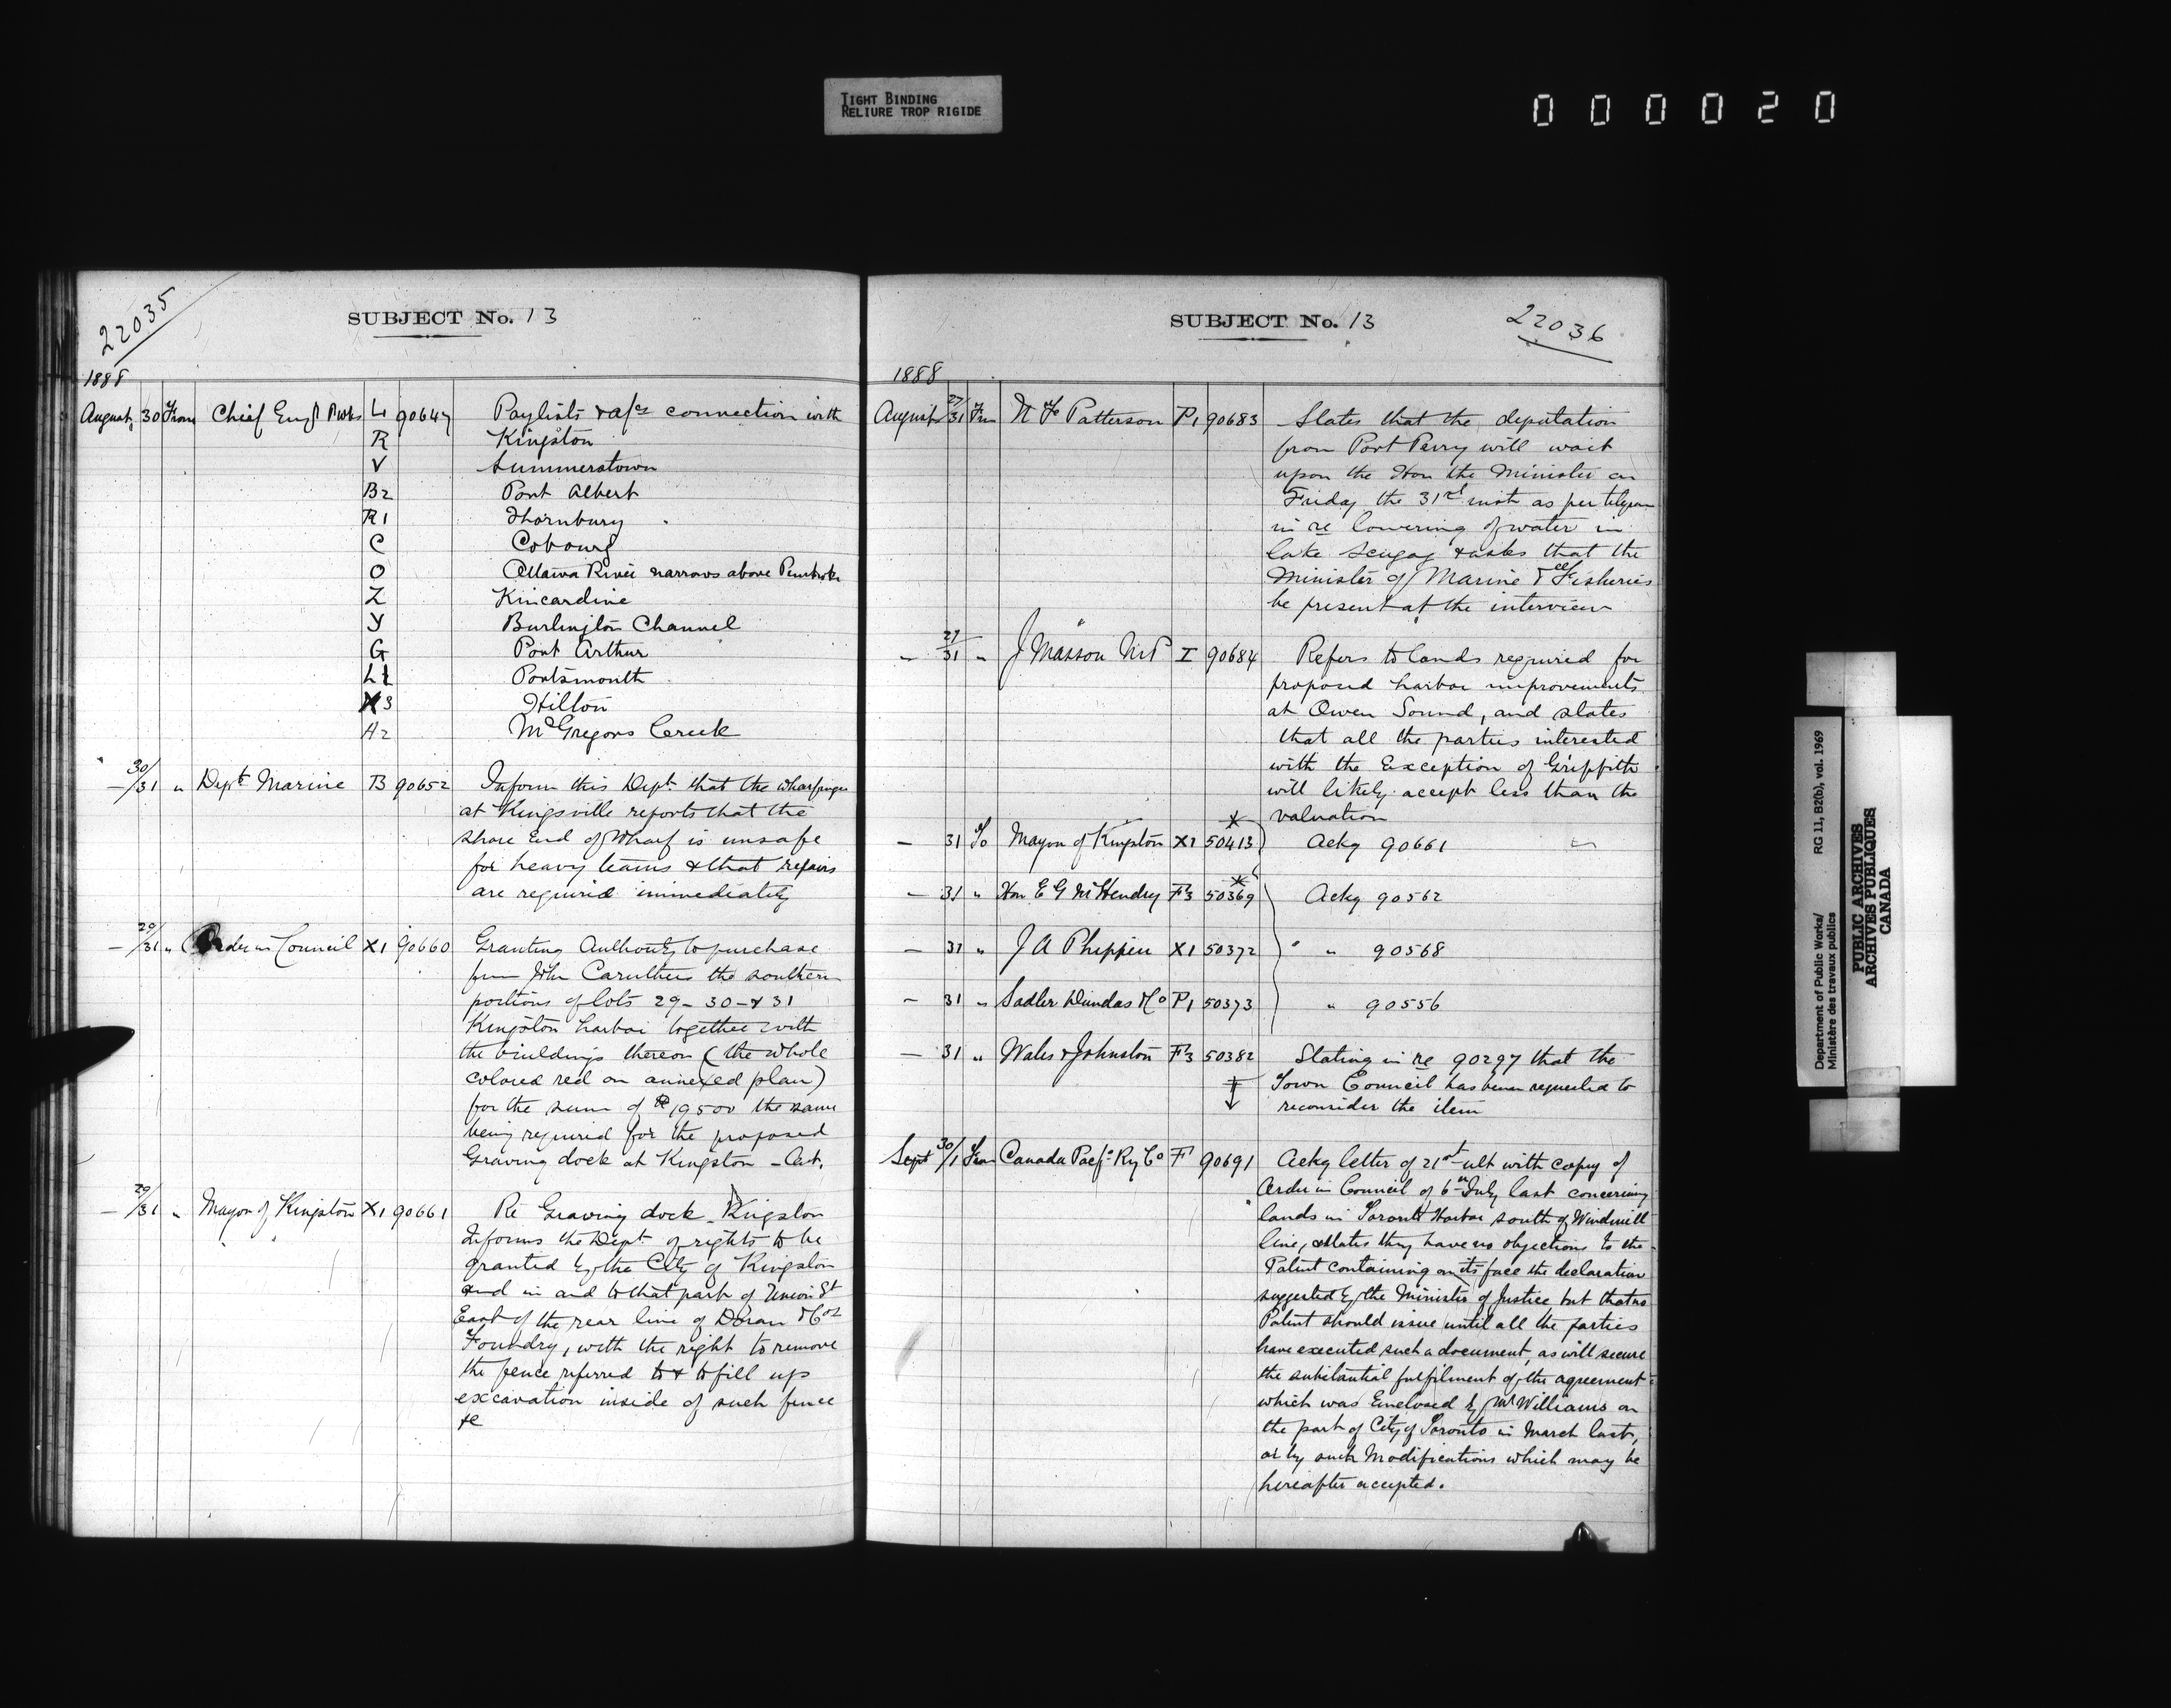 TIGHT BINDING
RELIURE TROP RIGIDE
0 0 0 0 2 0
22035
SUBJECT No. 13
1888
August 30 From Chief Engr P Wks L 90647 Paylists & a/cs connection with
R Kingston
V Summerstown
B2 Port Albert
R1 Thornbury
C Cobourg
O Ottawa River narrows above Pembroke
Z Kincardine
Y Burlington Channel
G Port Arthur
L1 Portsmouth
X3 Hilton
A2 McGregors Creek
— 30/31 " Dept Marine B 90652 Inform this Dept that the wharfinger
at Kingsville reports that the
shore End of Wharf is unsafe
for heavy teams & that repairs
are required immediately
— 29/31 " Order in Council X1 90660 Granting Authority to purchase
from John Caruthers the southern
portions of lots 29 - 30 - & 31
Kingston harbor together with
the buildings thereon (the whole
colored red on annexed plan)
for the sum of $19500 the same
being required for the proposed
Graving dock at Kingston - Ont.
— 29/31 " Mayor of Kingston X1 90661 Re Graving dock Kingston
Informs the Dept of rights to be
granted by the City of Kingston
and in and to that part of Union St
East of the rear line of Doran & Cos
Foundry, with the right to remove
the fence referred to & to fill up
excavation inside of such fence
&c
SUBJECT No. 13
22036
1888
August 27/31 Frm N F Patterson P1 90683 States that the deputation
from Port Perry will wait
upon the Hon the Minister on
Friday the 31st inst as per telegram
in re lowering of water in
lake Scugog & asks that the
Minister of Marine & Fisheries
be present at the interview
" 29/31 " J Masson M.P I 90684 Refers to lands required for
proposed harbor improvements
at Owen Sound, and states
that all the parties interested
with the Exception of Griffith
will likely accept less than the
valuation
— 31 To Mayor of Kingston X1 50413 Ackg 90661
— 31 " Hon E G McHendry F3 50369 Ackg 90562
— 31 " J A Phippen X1 50372 " 90568
— 31 " Sadler Dundas & Co P1 50373 " 90556
— 31 " Wales & Johnston F3 50382 Stating in re 90297 that the
Town Council has been requested to
reconsider the item
Sept 30/1 From Canada Pacfc Ry Co F 90691 Ackg letter of 21st ult with copy of
Order in Council of 6th July last concerning
lands in Toronto Harbor south of Windmill
line, & states they have no objections to the
Patent containing on its face the declaration
suggested by the Minister of Justice but that no
Patent should issue until all the parties
have executed such a document, as will secure
the substantial fulfilment of the agreement
which was Enclosed by Mr Williams on
the part of City of Toronto in March last,
or by such Modifications which may be
hereafter accepted.
Department of Public Works/ RG 11, B2(b), vol. 1969
Ministère des travaux publics
PUBLIC ARCHIVES
ARCHIVES PUBLIQUES
CANADA